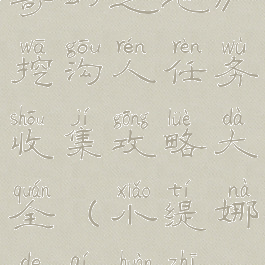 wā gōu rén rèn wù
挖沟人任务
shōu jí gōng lüè dà
收集攻略大
quán xiǎo tí nà
全(小缇娜
de qí huàn zhī